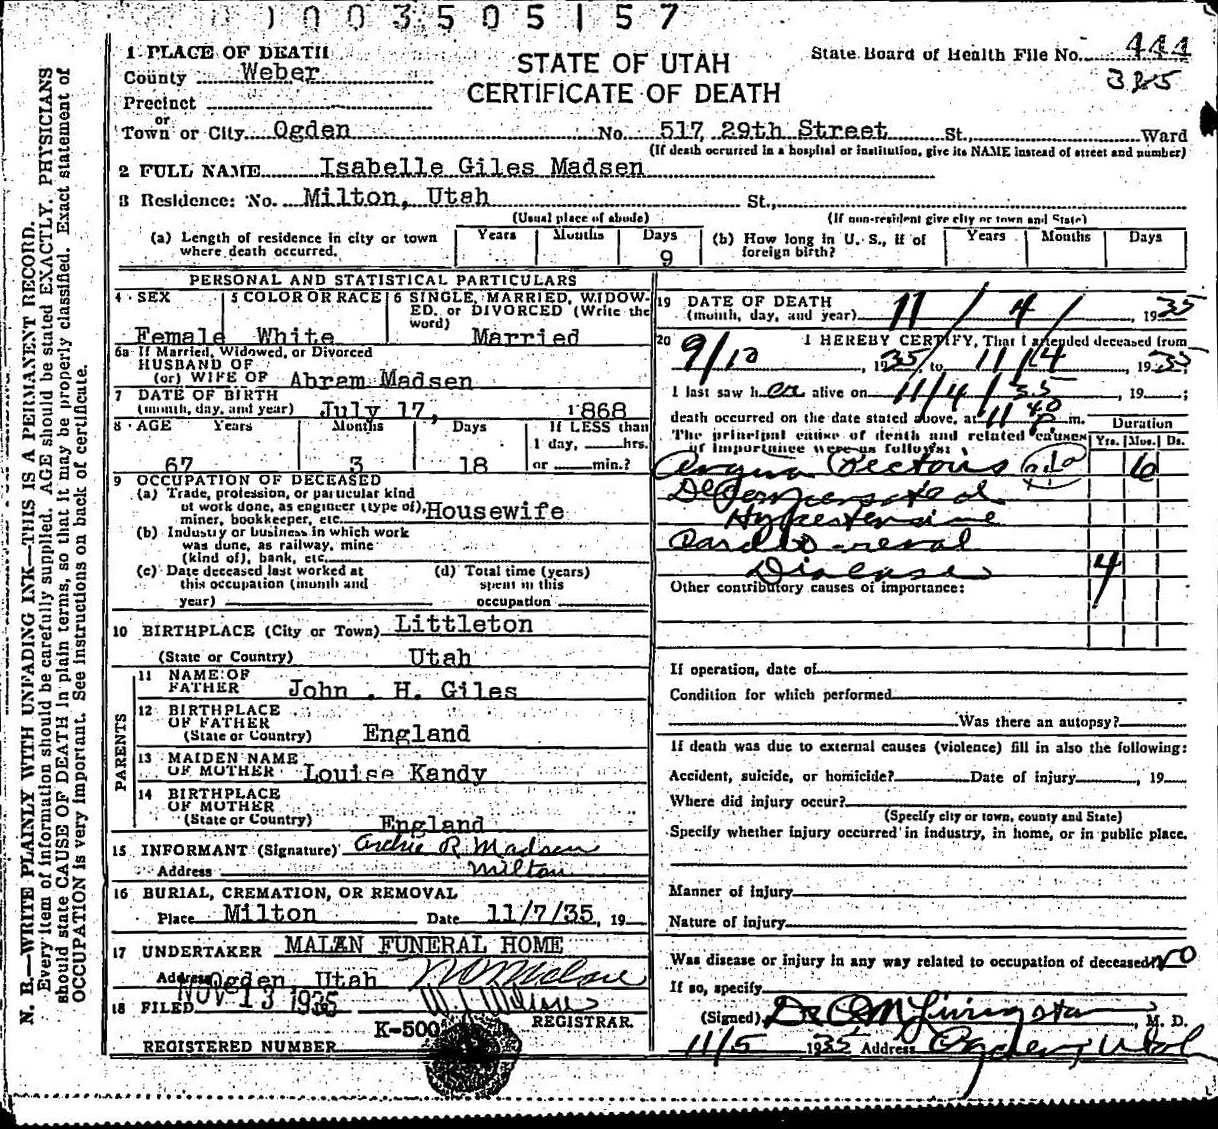 1003505157
1 PLACE OF DEATH
County Weber
Precinct
or
Town or City Ogden No. 517 29th Street St. Ward
STATE OF UTAH
CERTIFICATE OF DEATH
State Board of Health File No. 444
385
(If death occurred in a hospital or institution, give its NAME instead of street and number)
2 FULL NAME Isabelle Giles Madsen
3 Residence: No. Milton, Utah St.,
(Usual place of abode) (If non-resident give city or town and State)
(a) Length of residence in city or town where death occurred. Years Months Days 9
(b) How long in U. S., if of foreign birth? Years Months Days
PERSONAL AND STATISTICAL PARTICULARS
4 SEX Female
5 COLOR OR RACE White
6 SINGLE, MARRIED, WIDOWED, or DIVORCED (Write the word) Married
6a If Married, Widowed, or Divorced
HUSBAND OF
(or) WIFE OF Abram Madsen
7 DATE OF BIRTH
(month, day, and year) July 17, 1868
8 AGE Years Months Days If LESS than
1 day, hrs.
67 3 18 or min.?
9 OCCUPATION OF DECEASED
(a) Trade, profession, or particular kind
of work done, as engineer (type of),
miner, bookkeeper, etc. Housewife
(b) Industry or business in which work
was done, as railway, mine
(kind of), bank, etc.
(c) Date deceased last worked at
this occupation (month and
year)
(d) Total time (years)
spent in this
occupation
10 BIRTHPLACE (City or Town) Littleton
(State or Country) Utah
PARENTS
11 NAME OF
FATHER John . H. Giles
12 BIRTHPLACE
OF FATHER
(State or Country) England
13 MAIDEN NAME
OF MOTHER Louise Kandy
14 BIRTHPLACE
OF MOTHER
(State or Country) England
15 INFORMANT (Signature) Archie R Madsen
Address Milton
16 BURIAL, CREMATION, OR REMOVAL
Place Milton Date 11/7/35, 19
17 UNDERTAKER MALAN FUNERAL HOME
Address Ogden, Utah
18 FILED NOV 13 1935
REGISTRAR
K-500
REGISTERED NUMBER
19 DATE OF DEATH
(month, day, and year) 11/4/, 1935
20 I HEREBY CERTIFY, That I attended deceased from
9/10, 1935, to 11/4, 1935;
I last saw her alive on 11/4/35, 19 ;
death occurred on the date stated above, at 11 40 P m.
The principal cause of death and related causes
of importance were as follows:
Duration
Yrs. Mos. Ds.
Angina Pectoris 6
Decompensated
Hypertensive
Cardio-renal
Disease 4
Other contributory causes of importance:
If operation, date of
Condition for which performed
Was there an autopsy?
If death was due to external causes (violence) fill in also the following:
Accident, suicide, or homicide? Date of injury , 19
Where did injury occur?
(Specify city or town, county and State)
Specify whether injury occurred in industry, in home, or in public place.
Manner of injury
Nature of injury
Was disease or injury in any way related to occupation of deceased no
If so, specify
(Signed) Dr OM Livingston, M. D.
11/5 1935 Address Ogden, Utah
N. B.—WRITE PLAINLY WITH UNFADING INK—THIS IS A PERMANENT RECORD.
Every item of information should be carefully supplied. AGE should be stated EXACTLY. PHYSICIANS
should state CAUSE OF DEATH in plain terms, so that it may be properly classified. Exact statement of
OCCUPATION is very important. See instructions on back of certificate.